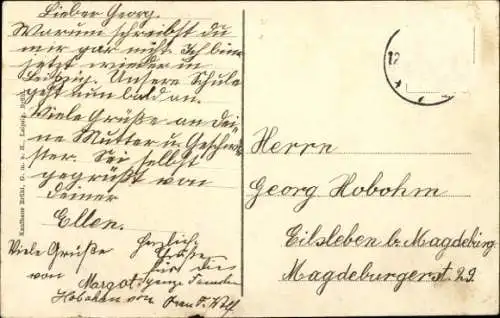 Lieber Georg.
Warum schreibst du
mir gar nicht. Ich bin
jetzt wieder in
Leipzig. Unsere Schule
geht nun bald an.
Viele Grüße an dei-
ne Mutter u. Geschwi-
ster. Sei selbst
gegrüßt von
deiner
Ellen.
Viele Grüße
von Margot
Herzliche
Grüße
für die
ganze Familie
von Frau
Kaufhaus Brühl, G. m. b. H., Leipzig, Brühl
12
Herrn
Georg Hobohm
Eilsleben b. Magdeburg
Magdeburgerst. 29.